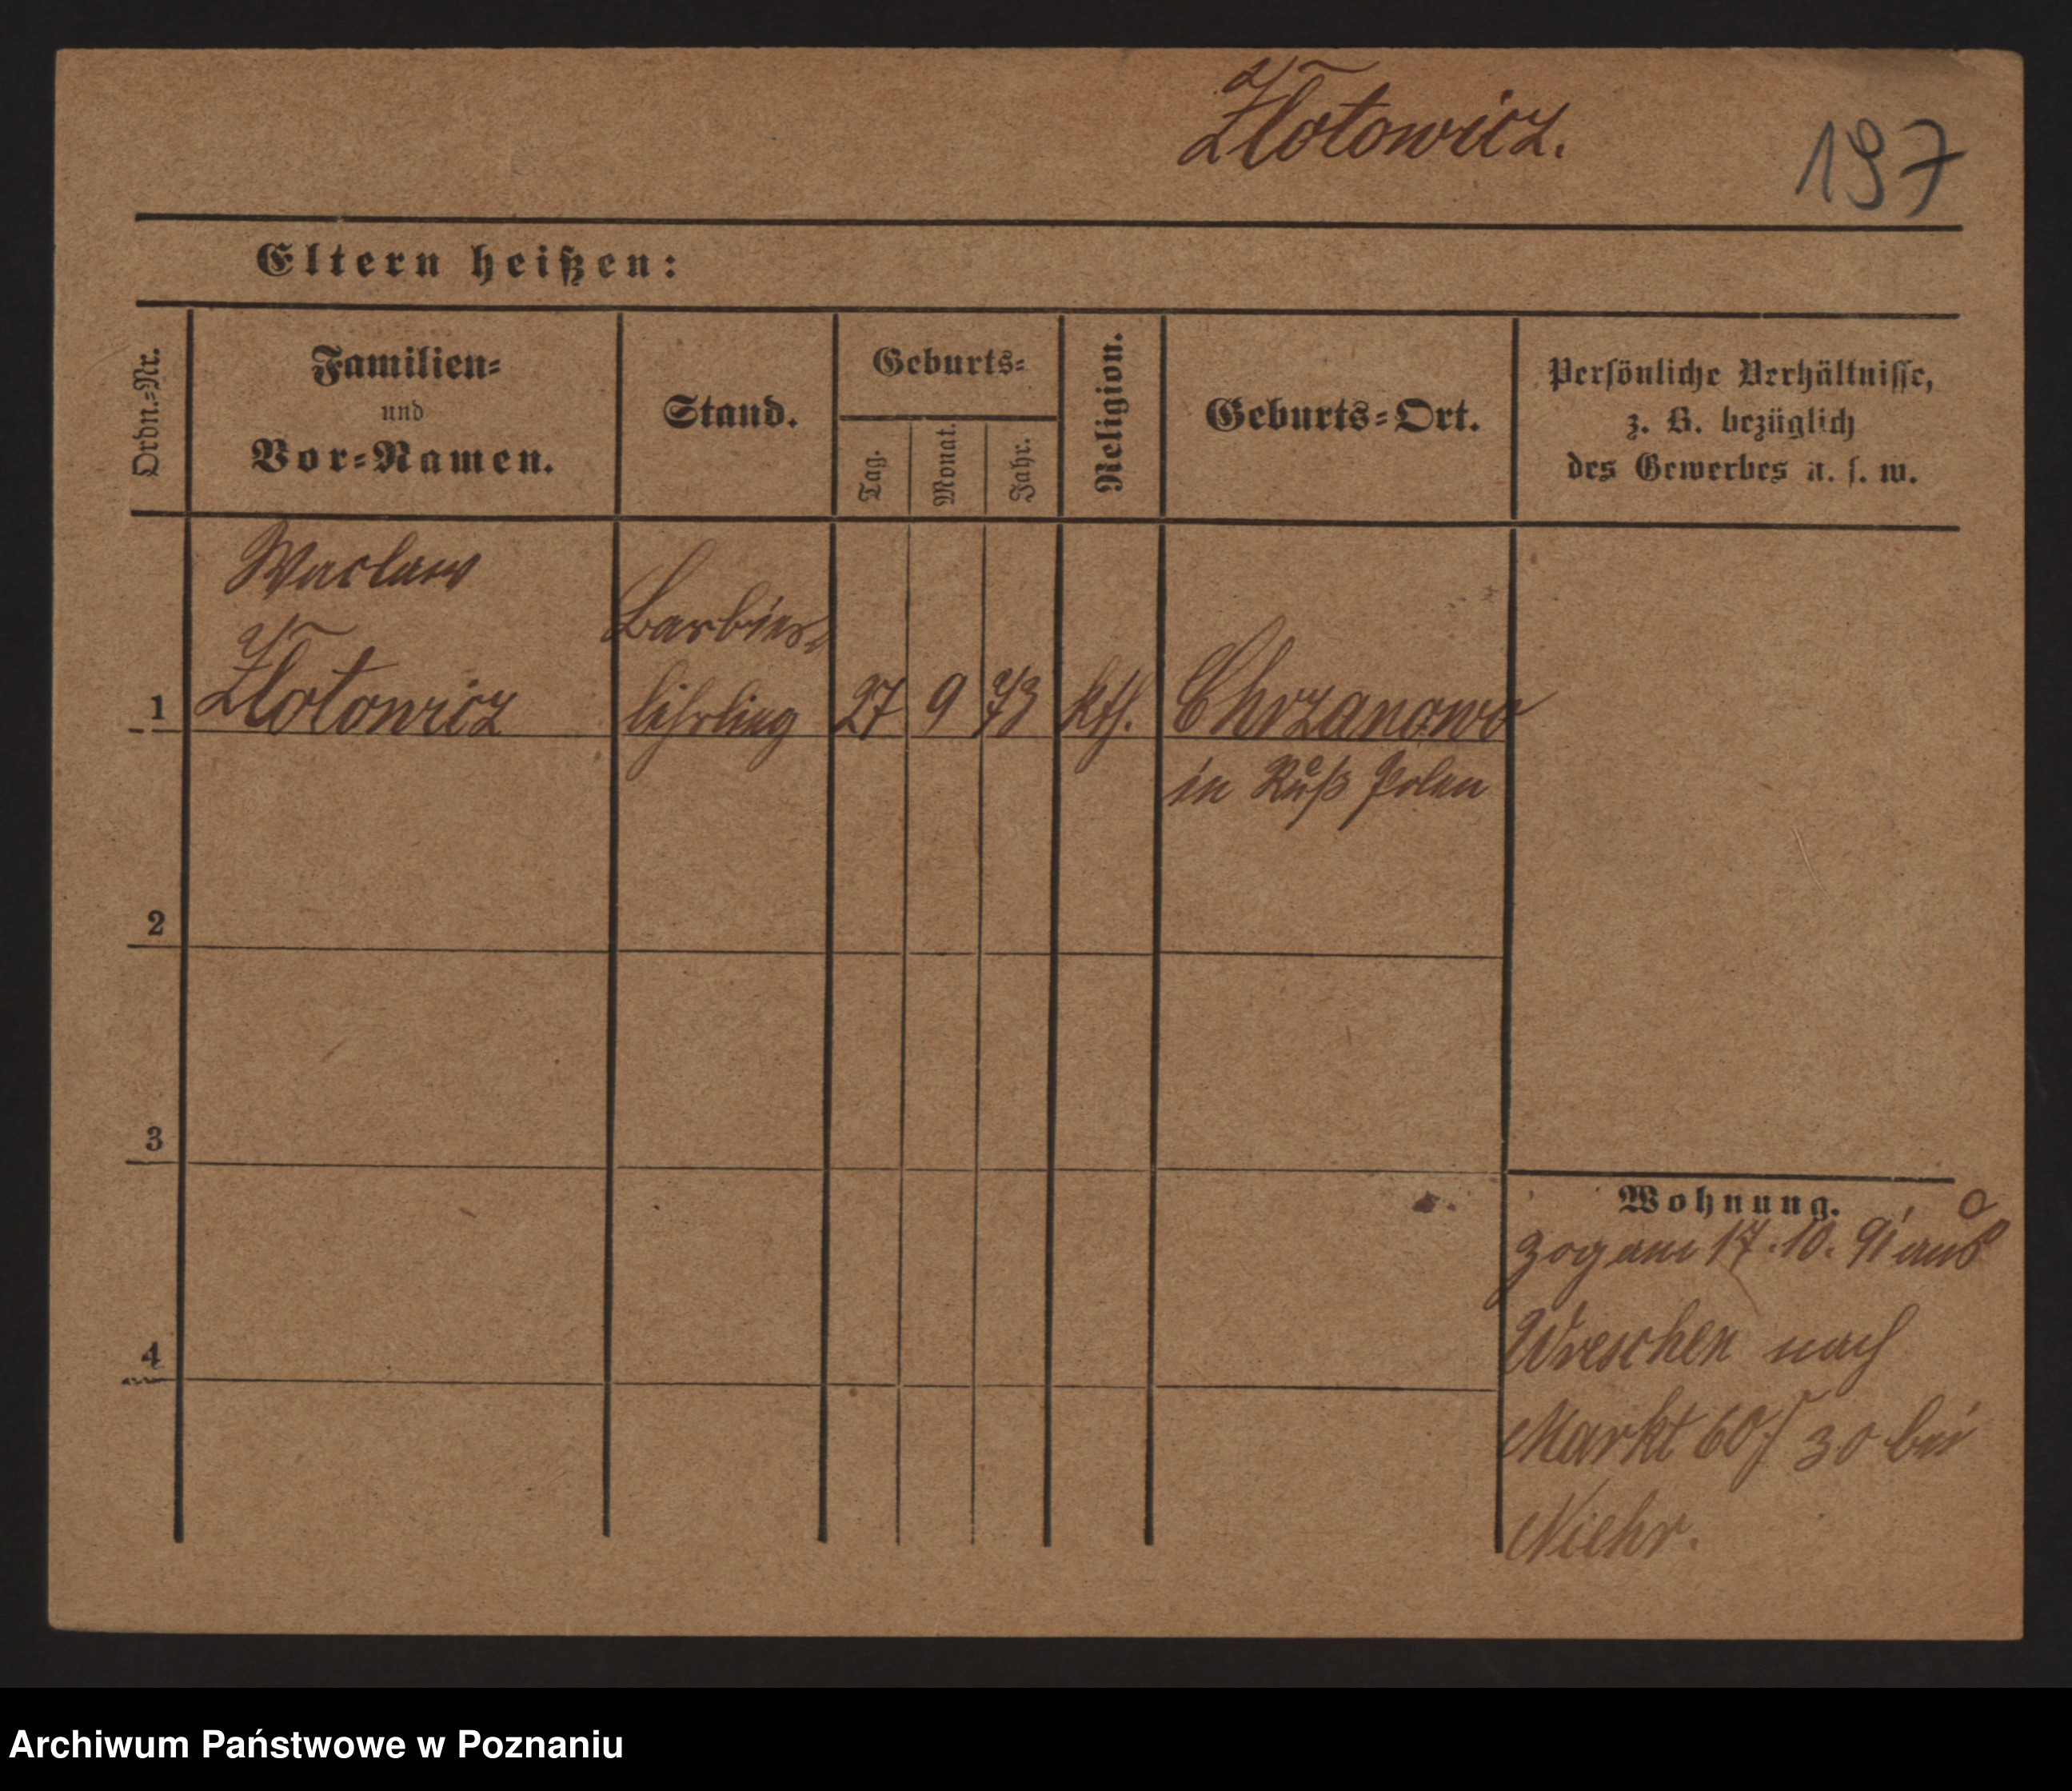 Zlotowicz.
197
Eltern heißen:
Ordn.-Nr.
Familien-
und
Vor-Namen.
Stand.
Geburts-
Tag.
Monat.
Jahr.
Religion.
Geburts-Ort.
Persönliche Verhältnisse,
z. B. bezüglich
des Gewerbes u. s. w.
Waclaw
Barbier-
1 Zlotowicz lehrling 27 9 73 kth. Chrzanowo
in Ruß Polen
2
3
4
Wohnung.
zog am 17.10.91 aus
Wreschen nach
Markt 60/ 30 bei
Niehr.
Archiwum Państwowe w Poznaniu